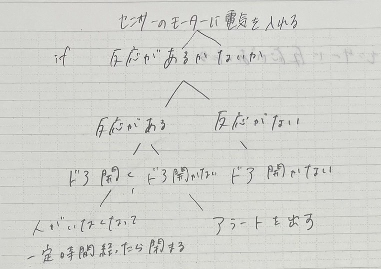 センサーのモーターに電気を入れる
if 反応があるかないか
反応がある 反応がない
ドア開く ドア開かない ドア開かない
人がいなくなって アラートを出す
一定時間経ったら閉まる